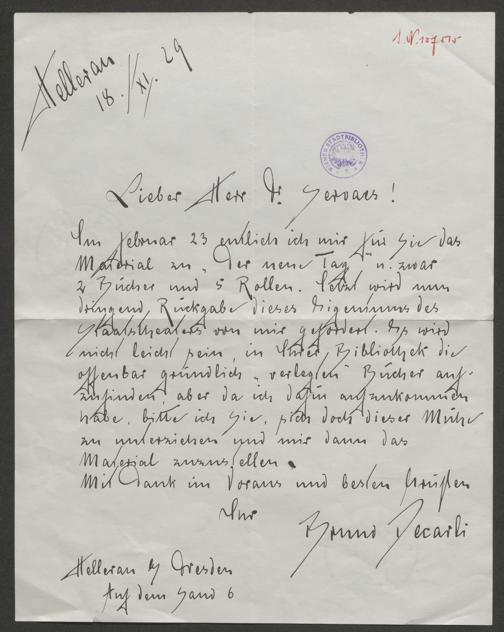 J.N. 127515
Hellerau
18./XI. 29
WIENER STADTBIBLIOTHEK
Lieber Herr Dr. Servaes!
Im Februar 23 entlieh ich mir für Sie das
Material zu „Der neue Tag" u. zwar
2 Bücher und 5 Rollen. Jetzt wird nun
dringend Rückgabe dieses Eigentums des
Staatstheaters von mir gefordert. Es wird
nicht leicht sein, in Ihrer Bibliothek die
offenbar gründlich „verlegten" Bücher auf-
zufinden, aber da ich dafür aufzukommen
habe, bitte ich Sie, sich doch dieser Mühe
zu unterziehen und mir dann das
Material zuzustellen.
Mit Dank im Voraus und besten Grüßen
Ihr
Bruno Decarli
Hellerau b/ Dresden
Auf dem Sand 6